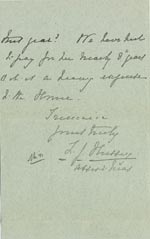 past year? We have had
to pay for her nearly 8 years
& it is a heavy expense
to the Home.
I remain
Yours truly